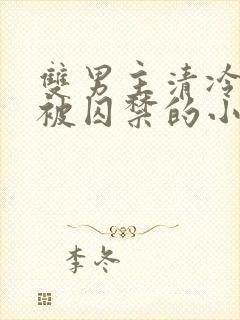 雙男主清冷
被囚禁的小
李冬